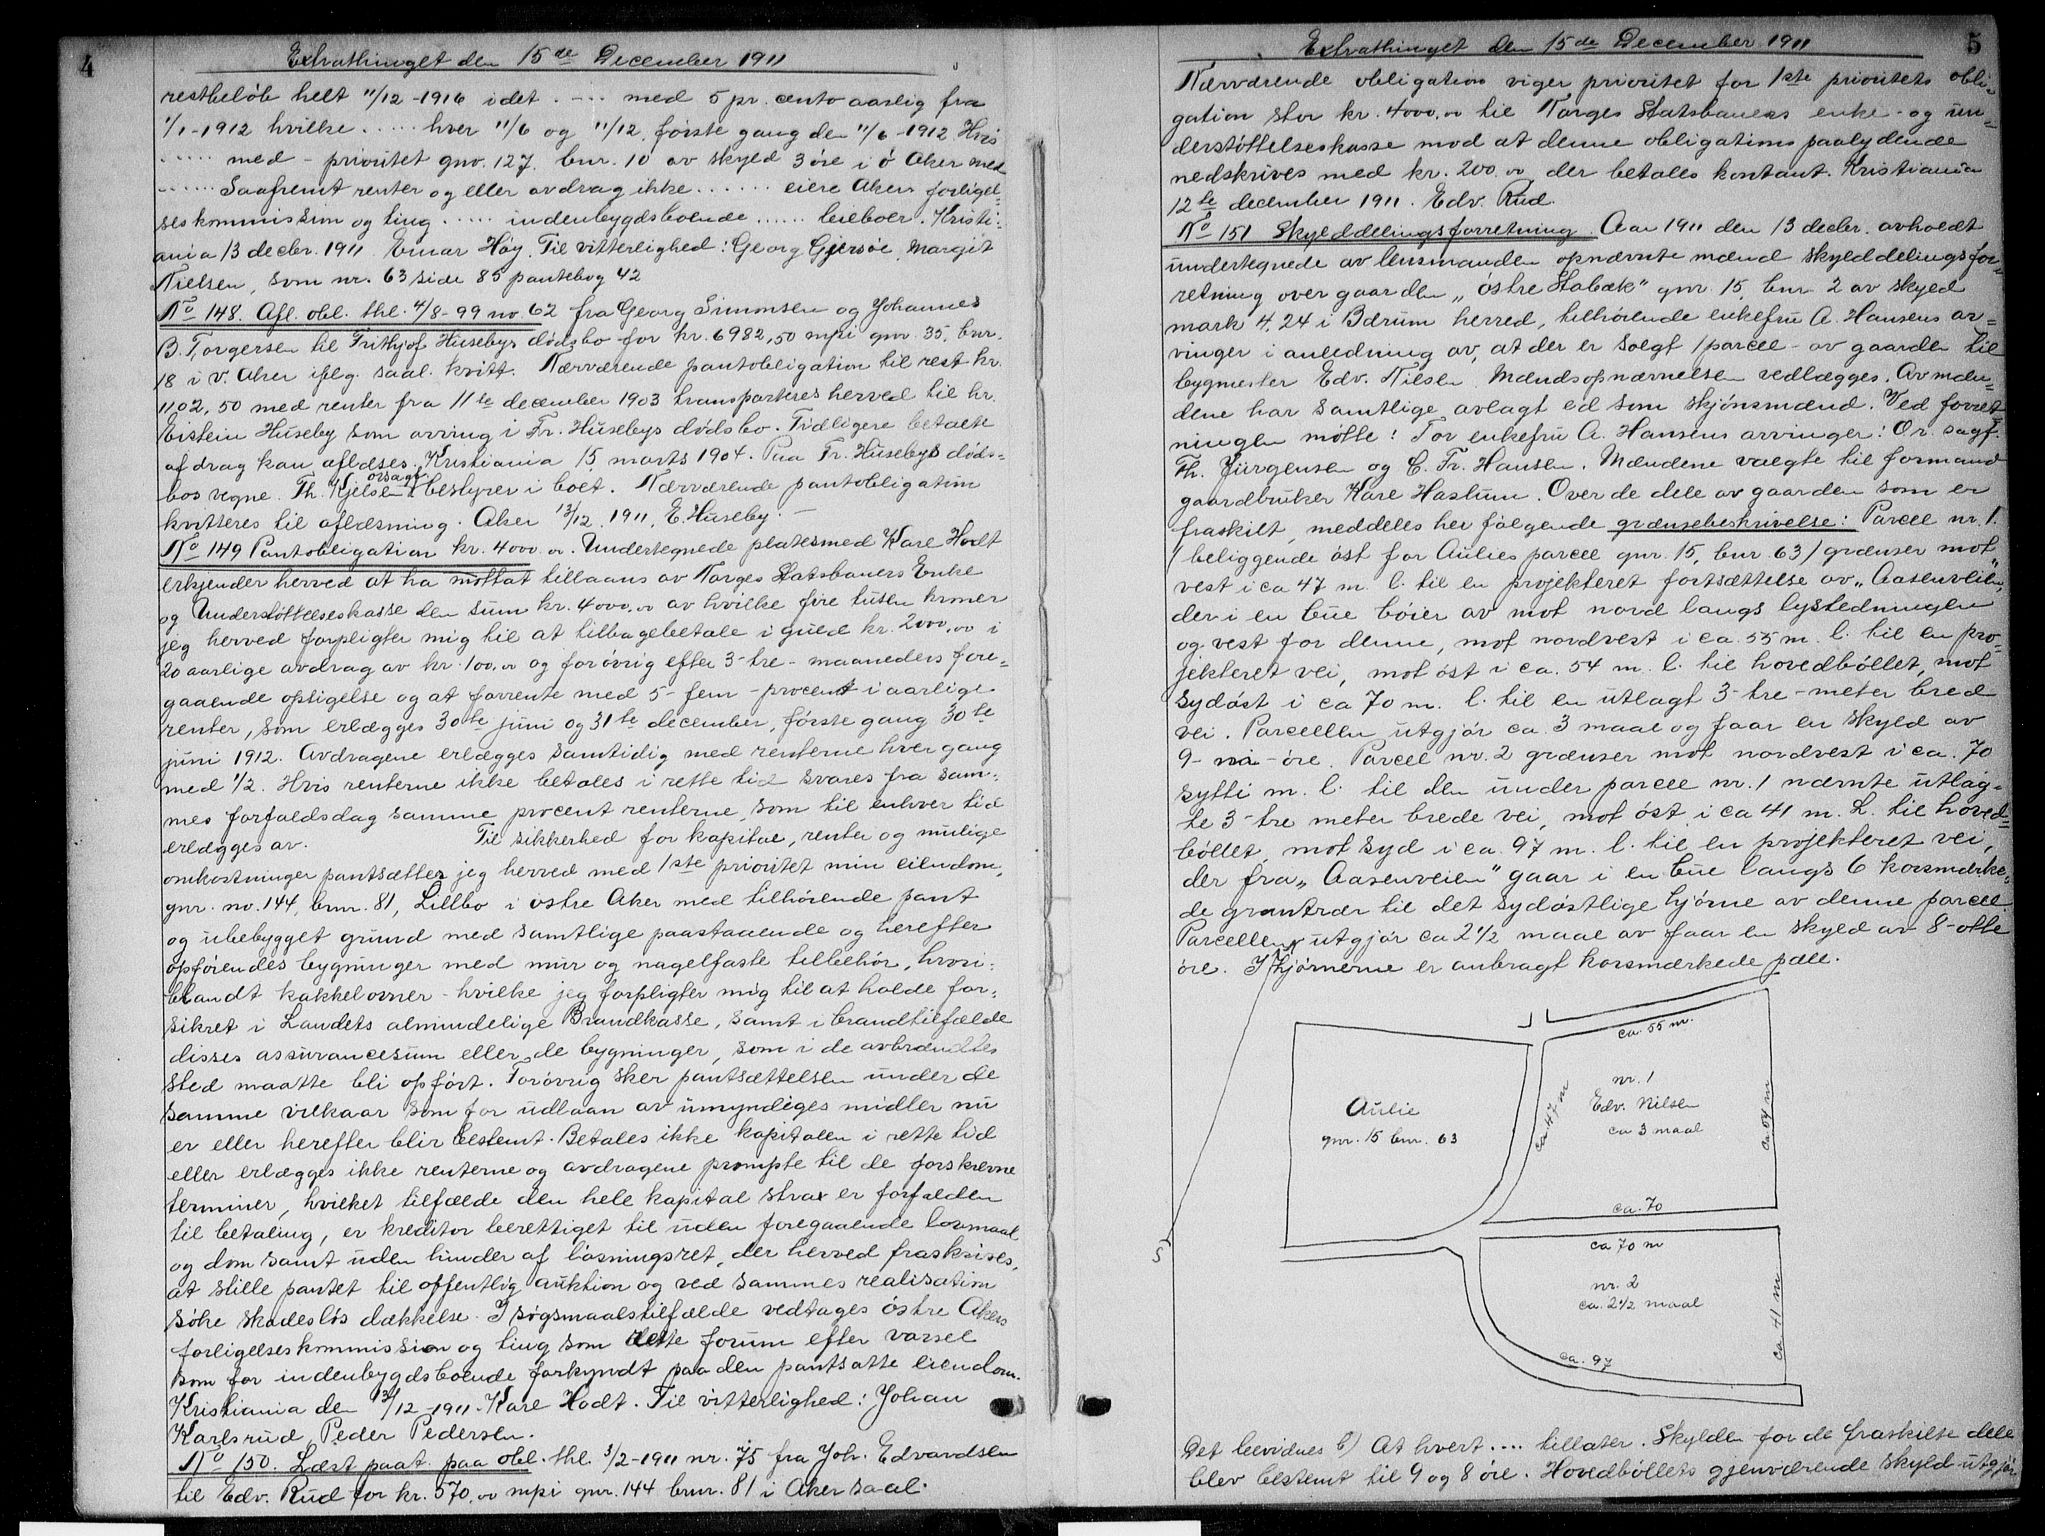 4
Extrathinget den 15de December 1911
restbeløb helt 11/12-1916 idet .---- med 5 pr. cento aarlig fra
1/1-1912 hvilke ..... hver 11/6 og 11/12, første gang den 11/6-1912 Hvis
..... med - prioritet gnr. 127. bnr. 10 av skyld 3 øre i ø Aker med
...... Saafremt renter og eller avdrag ikke ...... eiere Akers forligel-
seskommission og ting ..... indenbygdsboende ...... leieboer. Kristi-
ania 13 decbr. 1911 Einar Høy. Til vitterlighed: Georg Gjersøe, Margit
Nielsen, som nr. 63 side 85 pantebog 42
No 148. Afl. obl. thl. 4/8-99 no. 62 fra Georg Simmsen og Johannes
B. Torgersen til Frithjof Husebys dødsbo for kr. 6982,50 mpi gnr. 35, bnr.
18 i v. Aker iflg. saal. kvitt. Nærværende pantobligation til rest kr.
1102,50 med renter fra 11te december 1903 transporteres herved til hr.
Eistein Huseby som arving i Fr. Husebys dødsbo. Tidligere betalte
afdrag kan aflæses. Kristiania 15 marts 1904. Paa Fr. Husebys døds-
bos vegne. Th. Kjelsen orsagf bestyrer i boet. Nærværende pantobligation
kvitteres til aflæsning. Aker 13/12 1911, E. Huseby. -
No 149 Pantobligation kr. 4000.00. Undertegnede platesmed Karl Hodt
erkjender herved at ha mottat tillaans av Norges Statsbaners Enke
og Understøttelseskasse den sum kr. 4000,00 av hvilke fire tusen kroner
jeg herved forpligter mig til at tilbagebetale i guld kr. 2000,00 i
20 aarlige avdrag av kr. 100,00 og forøvrig efter 3-tre-maaneders fore-
gaaende opsigelse og at forrente med 5-fem-procent i aarlige
renter, som erlægges 30te juni og 31te december, første gang 30te
juni 1912. Avdragene erlægges samtidig med renterne hver gang
med 1/2. Hvis renterne ikke betales i rette tid svares fra sam-
mes forfaldsdag samme procent renterne, som til enhver tid
erlægges av. Til sikkerhed for kapital, renter og mulige
omkostninger pantsætter jeg herved med 1ste prioritet min eiendom,
gnr. no. 144, bnr. 81, Lillbo i østre Aker med tilhørende pant
og ubebygget grund med samtlige paastaaende og herefter
opførendes bygninger med mur og nagelfaste tilbehør, hvori-
blandt kakkelovner - hvilke jeg forpligter mig til at holde for-
sikret i Landets almindelige Brandkasse, samt i brandtilfælde
disses assurancesum eller de bygninger, som i de avbrændtes
sted maatte bli opført. Forøvrig sker pantsættelsen under de
samme vilkaar som for udlaan av umyndiges midler nu
er eller herefter blir bestemt. Betales ikke kapitalen i rette tid
eller erlægges ikke renterne og avdragene prompte til de forskrevne
terminer, hvilket tilfælde den hele kapital strax er forfalden
til betaling, er kreditor berettiget til uden foregaaende lovmaal
og dom samt uden hinder af løsningsret, der herved fraskrives,
at stille pantet til offentlig auktion og ved sammes realisation
søke skadesløs dækkelse. I søgsmaalstilfælde vedtages østre Akers
forligelseskommission og ting som rette forum efter varsel
som for indenbygdsboende forkyndt paa den pantsatte eiendom.
Kristiania den 13/12-1911. Karl Hodt. Til vitterlighed: Johan
Karlsrud, Peder Pedersen.
No 150. Læst paat. paa obl. thl. 3/2-1911 nr. 75 fra Joh. Edvardsen
til Edv. Rud for kr. 570,00 mpi gnr. 144 bnr. 81 i Aker saal.
Extrathinget den 15de December 1911
5
Nærværende obligation viger prioritet for 1ste prioritets obli-
gation stor kr. 4000,00 til Norges Statsbaners enke- og un-
derstøttelseskasse mod at denne obligations paalydende
nedskrives med kr. 200.00 der betales kontant. Kristiania
12te december 1911. Edv. Rud.
No 151 Skylddelingsforretning. Aar 1911 den 13 decbr. avholdt
undertegnede av lensmanden opnævnte mænd skylddelingsfor-
retning over gaarden „østre Stabæk" gnr. 15, bnr. 2 av skyld
mark 4,24 i Bærum herred, tilhørende enkefru A. Hansens ar-
vinger i anledning av, at der er solgt 1 parcel - av gaarden til
bygmester Edv. Nilsen. Mændsopnævnelsen vedlægges. Av mæn-
dene har samtlige avlagt ed som skjønsmænd. Ved forret-
ningen møtte: For enkefru A. Hansens arvinger: O.r. sagf.
Th. Jürgensen og C. Fr. Hansen. Mændene valgte til formand
gaardbruker Karl Haslum. Over de dele av gaarden som er
fraskilt, meddeles her følgende grænsebeskrivelse: Parcel nr. 1.
(beliggende øst for Aulies parcel gnr. 15, bnr. 63) grænser mot
vest i ca 47 m. l. til en projekteret fortsættelse av „Aasenveien",
der i en bue bøier av mot nord langs lysledningen
og vest for denne, mot nordvest i ca. 55 m. l. til en pro-
jekteret vei, mot øst i ca. 54 m. l. til hovedbøllet, mot
sydøst i ca 70 m. l. til en utlagt 3-tre-meter bred
vei. Parcellen utgjør ca. 3 maal og faar en skyld av
9-ni-øre. Parcel nr. 2 grænser mot nordvest i ca. 70
sytti m. l. til den under parcel nr. 1 nævnte utlag-
te 3-tre meter brede vei, mot øst i ca 41 m. l. til hoved-
bøllet, mot syd i ca. 97 m. l. til en projekteret vei,
der fra „Aasenveien" gaar i en bue langs 6 korsmærke-
de grantrær til det sydøstlige hjørne av denne parcel.
Parcellen utgjør ca 2 1/2 maal av faar en skyld av 8-otte
øre. I hjørnerne er anbragt korsmærkede pæle.
ca. 55 m.
nr. 1
Edv. Nilsen
ca 3 maal
ca 47 m
ca. 54 m
Aulie
gnr. 15 bnr. 63
ca. 70
S
ca 70 m
nr. 2
ca. 2 1/2 maal
ca 41 m
ca. 97
Det bevidnes b) At hvert .... tillater. Skylden for de fraskilte dele
blev bestemt til 9 og 8 øre. Hovedbøllets gjenværende skyld utgjør